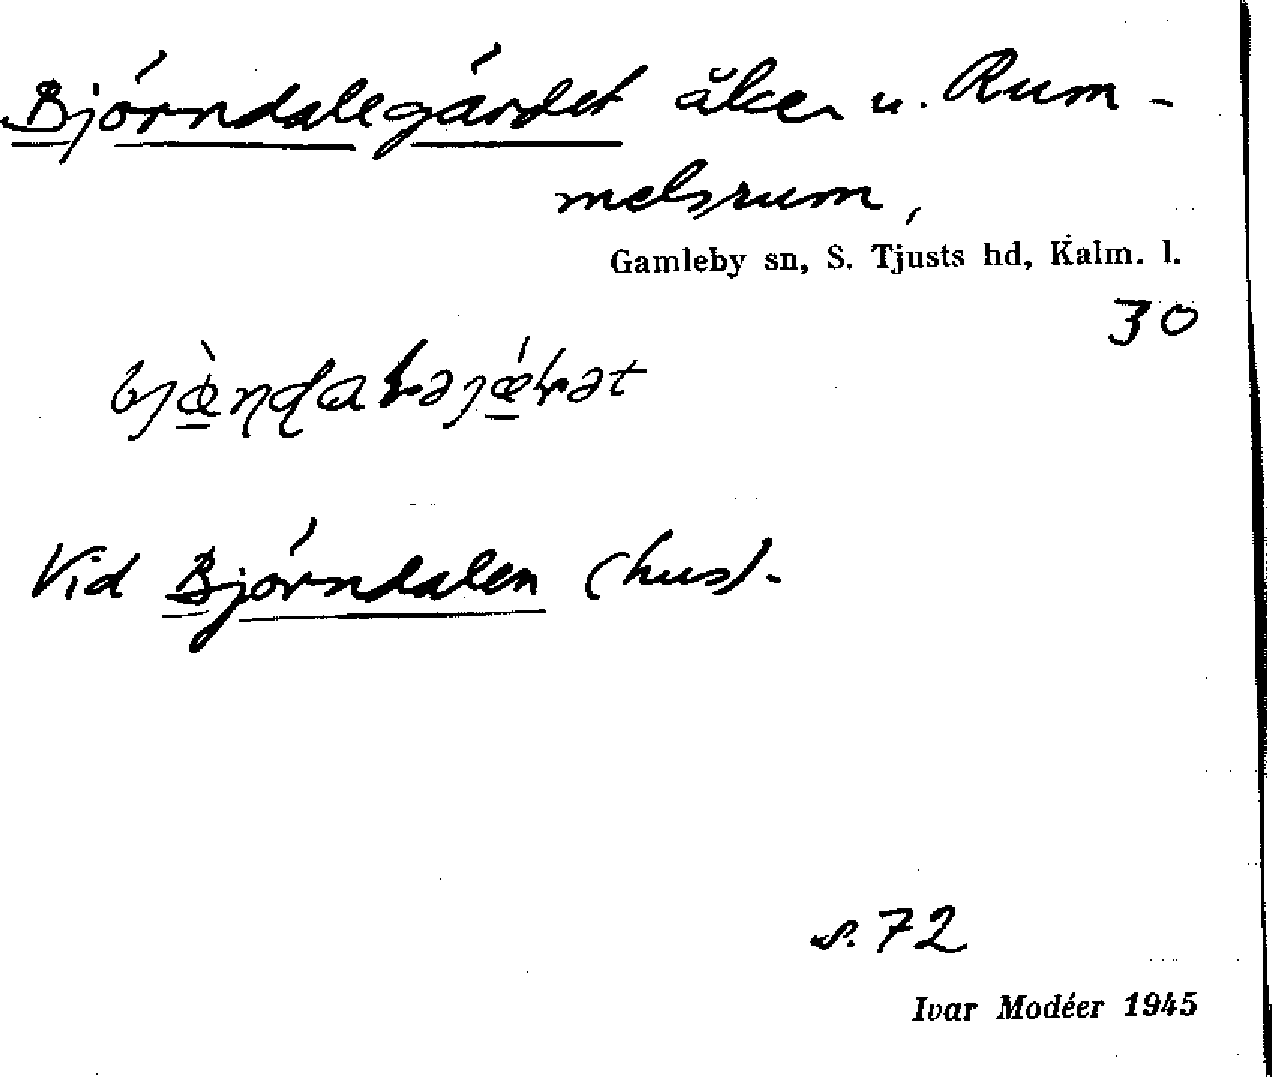 Björndalegärdet åker u. Rum-
melsrum,
Gamleby sn, S. Tjusts hd, Kalm. l.
30
Vid Björndalen (hus).
s. 72
Ivar Modéer 1945